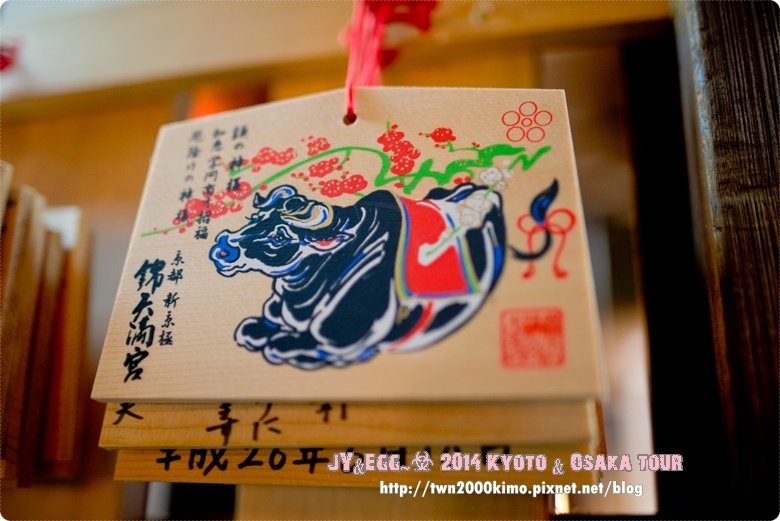 錦の神様
知恵学問商才招福
厄除けの神様
京都 新京極
錦天満宮
平成26年
JY&EGG 2014 KYOTO & OSAKA TOUR
http://twn2000kimo.pixnet.net/blog